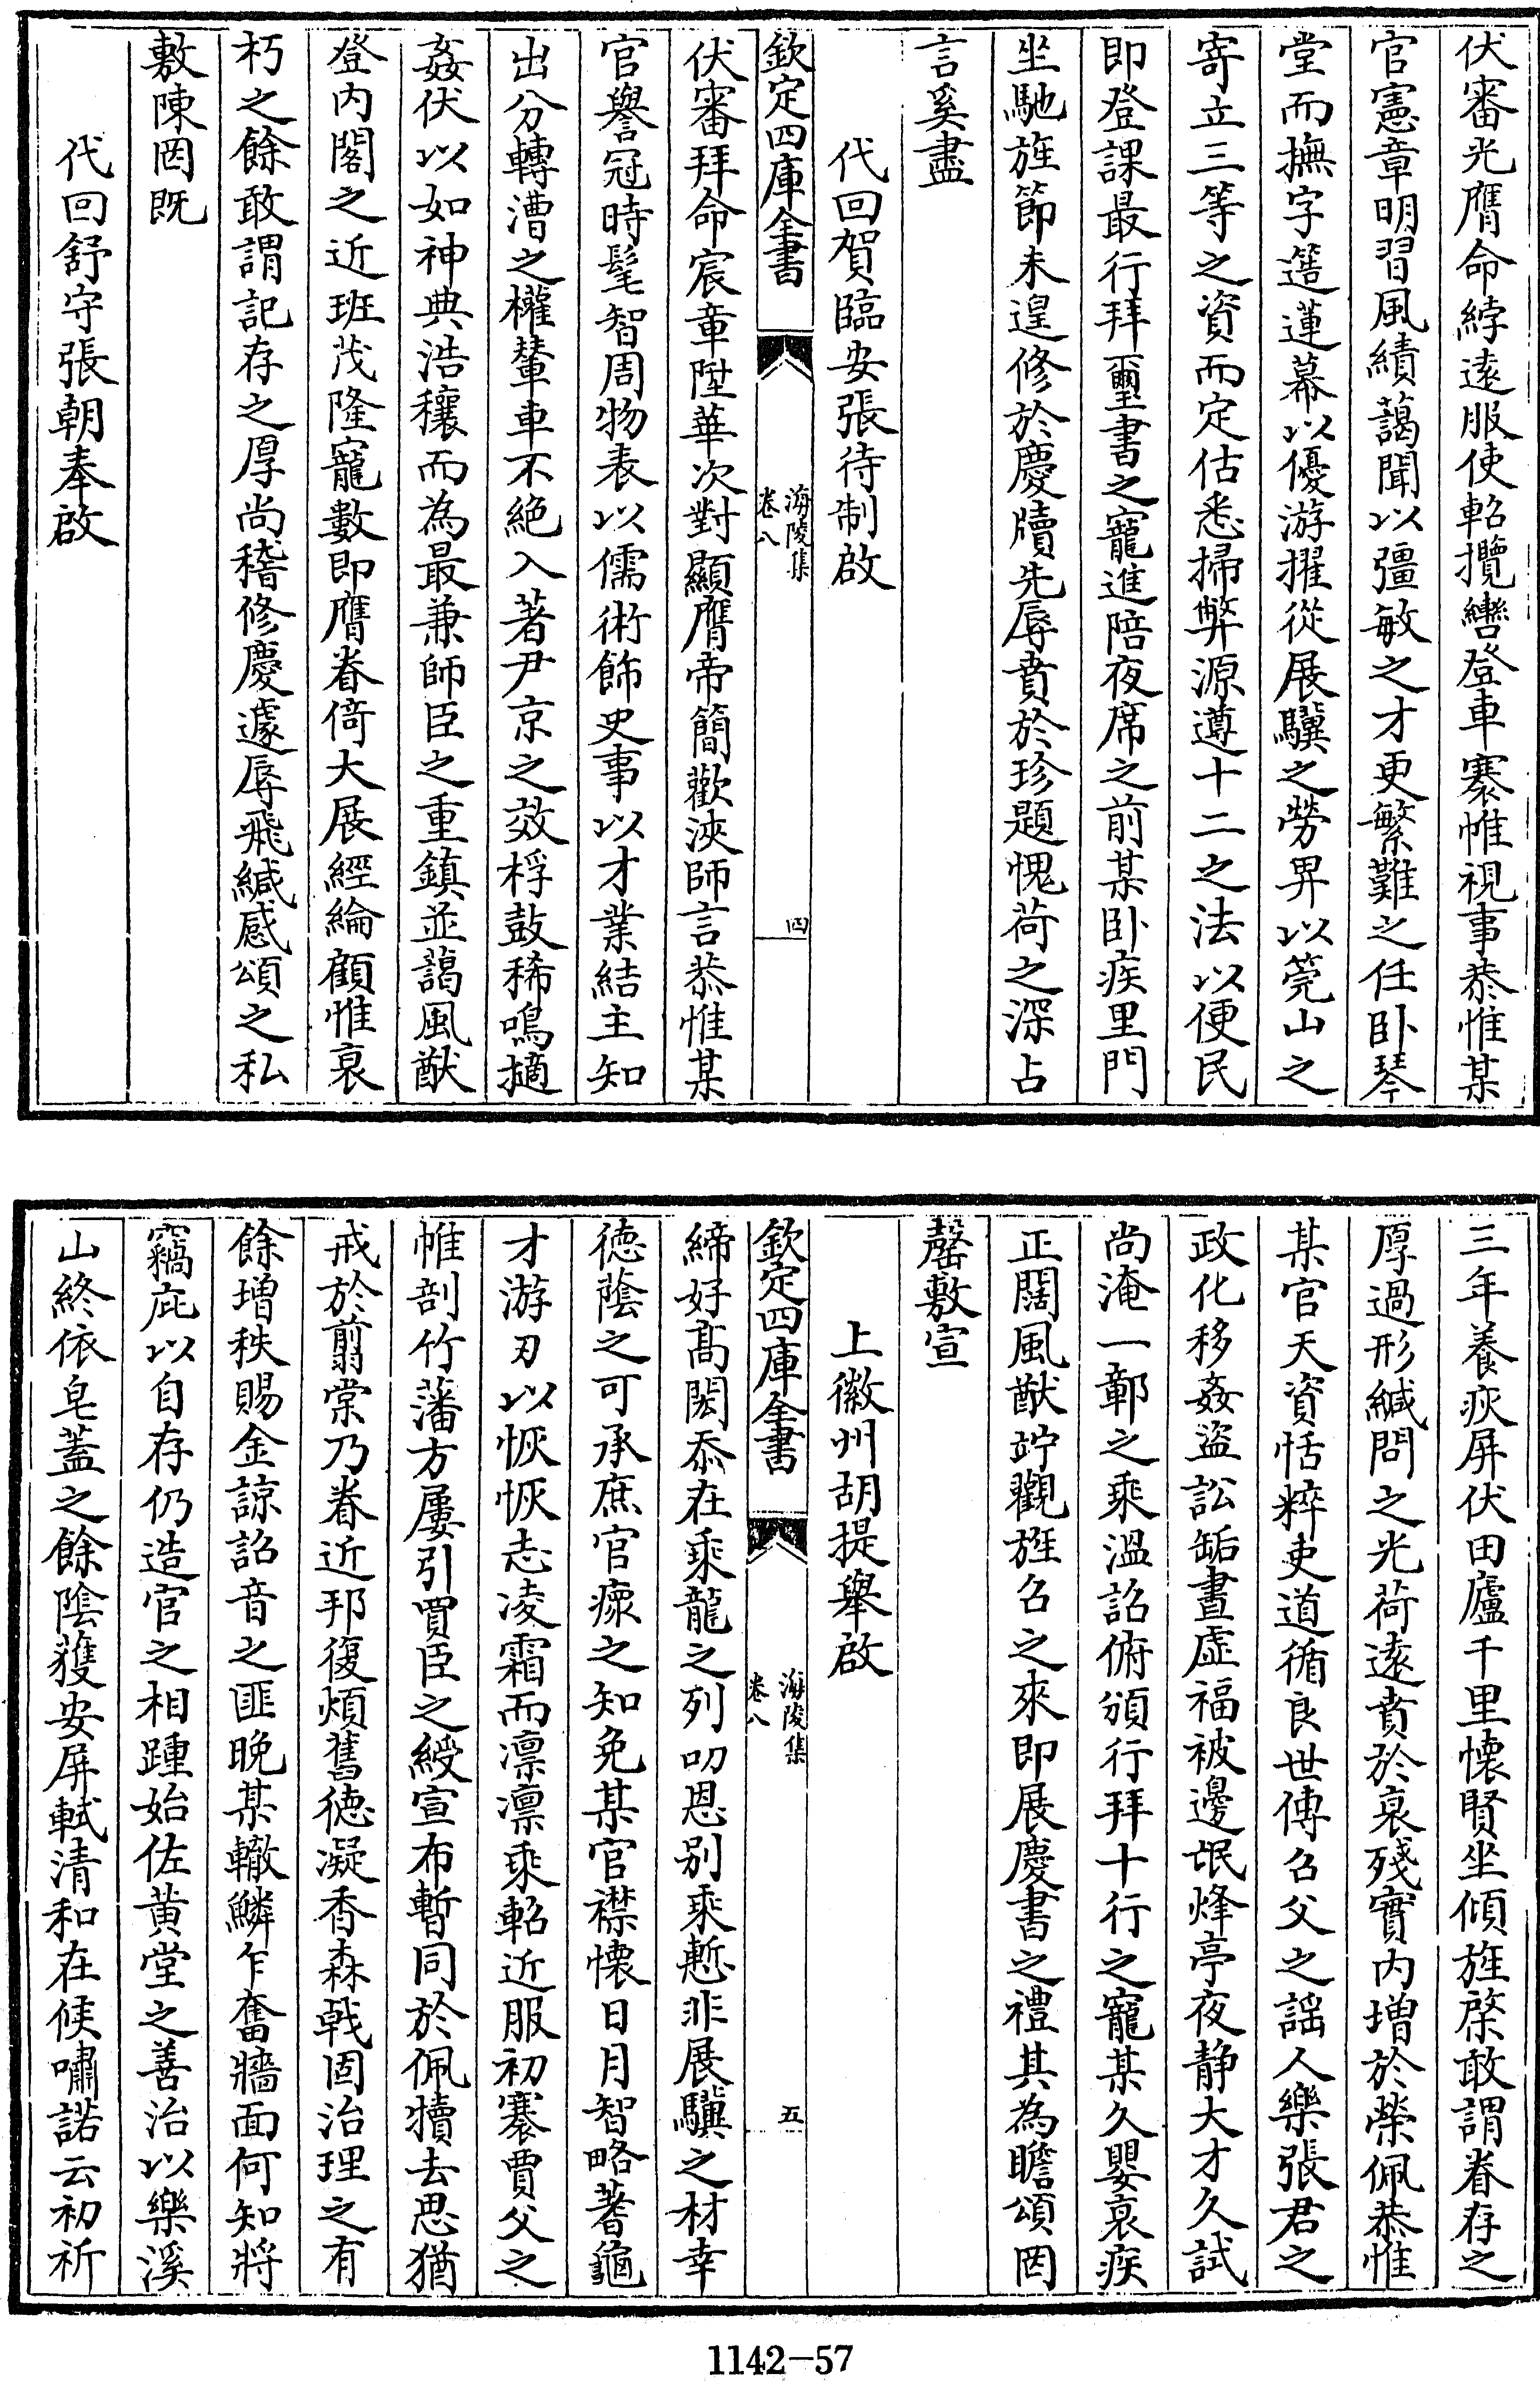 伏審光膺命綍遠服使軺攬轡登車褰帷視事恭惟某
官憲章明習風績藹聞以彊敏之才更繁難之任卧琴
堂而撫字簉蓮幕以優游擢從展驥之勞畀以筦山之
寄立三等之資而定估悉掃弊源遵十二之法以便民
即登課最行拜璽書之寵進陪夜席之前某卧疾里門
坐馳旌節未遑修於慶牘先辱賁於珍題愧荷之深占
言奚盡
代回賀臨安張待制啟
欽定四庫全書
海陵集
卷八
四
伏審拜命宸章陞華次對顯膺帝簡歡浹師言恭惟某
官譽冠時髦智周物表以儒術飾吏事以才業結主知
出分轉漕之權輦車不絶入著尹京之效桴鼓稀鳴擿
姦伏以如神典浩穰而為最兼師臣之重鎮並藹風猷
登内閣之近班茂隆寵數即膺眷倚大展經綸顧惟衰
朽之餘敢謂記存之厚尚稽修慶遽辱飛緘感頌之私
敷陳罔既
代回舒守張朝奉啟
三年養疢屏伏田廬千里懷賢坐傾旌棨敢謂眷存之
厚過形緘問之光荷遠賁於衰殘實内增於榮佩恭惟
某官天資恬粹吏道循良世傳召父之謡人樂張君之
政化移姦盜訟缿晝虚福被邊氓烽亭夜静大才久試
尚淹一鄣之乘溫詔俯頒行拜十行之寵某久嬰衰疾
正闊風猷竚觀旌召之來即展慶書之禮其為瞻頌罔
罄敷宣
上徽州胡提舉啟
欽定四庫全書
海陵集
卷八
五
締好高閎忝在乘龍之列叨恩别乘慙非展驥之材幸
德蔭之可承庶官瘝之知免某官襟懷日月智略蓍龜
才游刃以恢恢志凌霜而凛凛乘軺近服初褰賈父之
帷剖竹藩方屢引買臣之綬宣布暫同於佩犢去思猶
戒於翦棠乃眷近邦復煩舊德凝香森戟固治理之有
餘增秩賜金諒詔音之匪晚某轍鱗乍奮牆面何知將
竊庇以自存仍造官之相踵始佐黄堂之善治以樂溪
山終依皂蓋之餘陰獲安屏軾清和在候嘯諾云初祈
1142-57